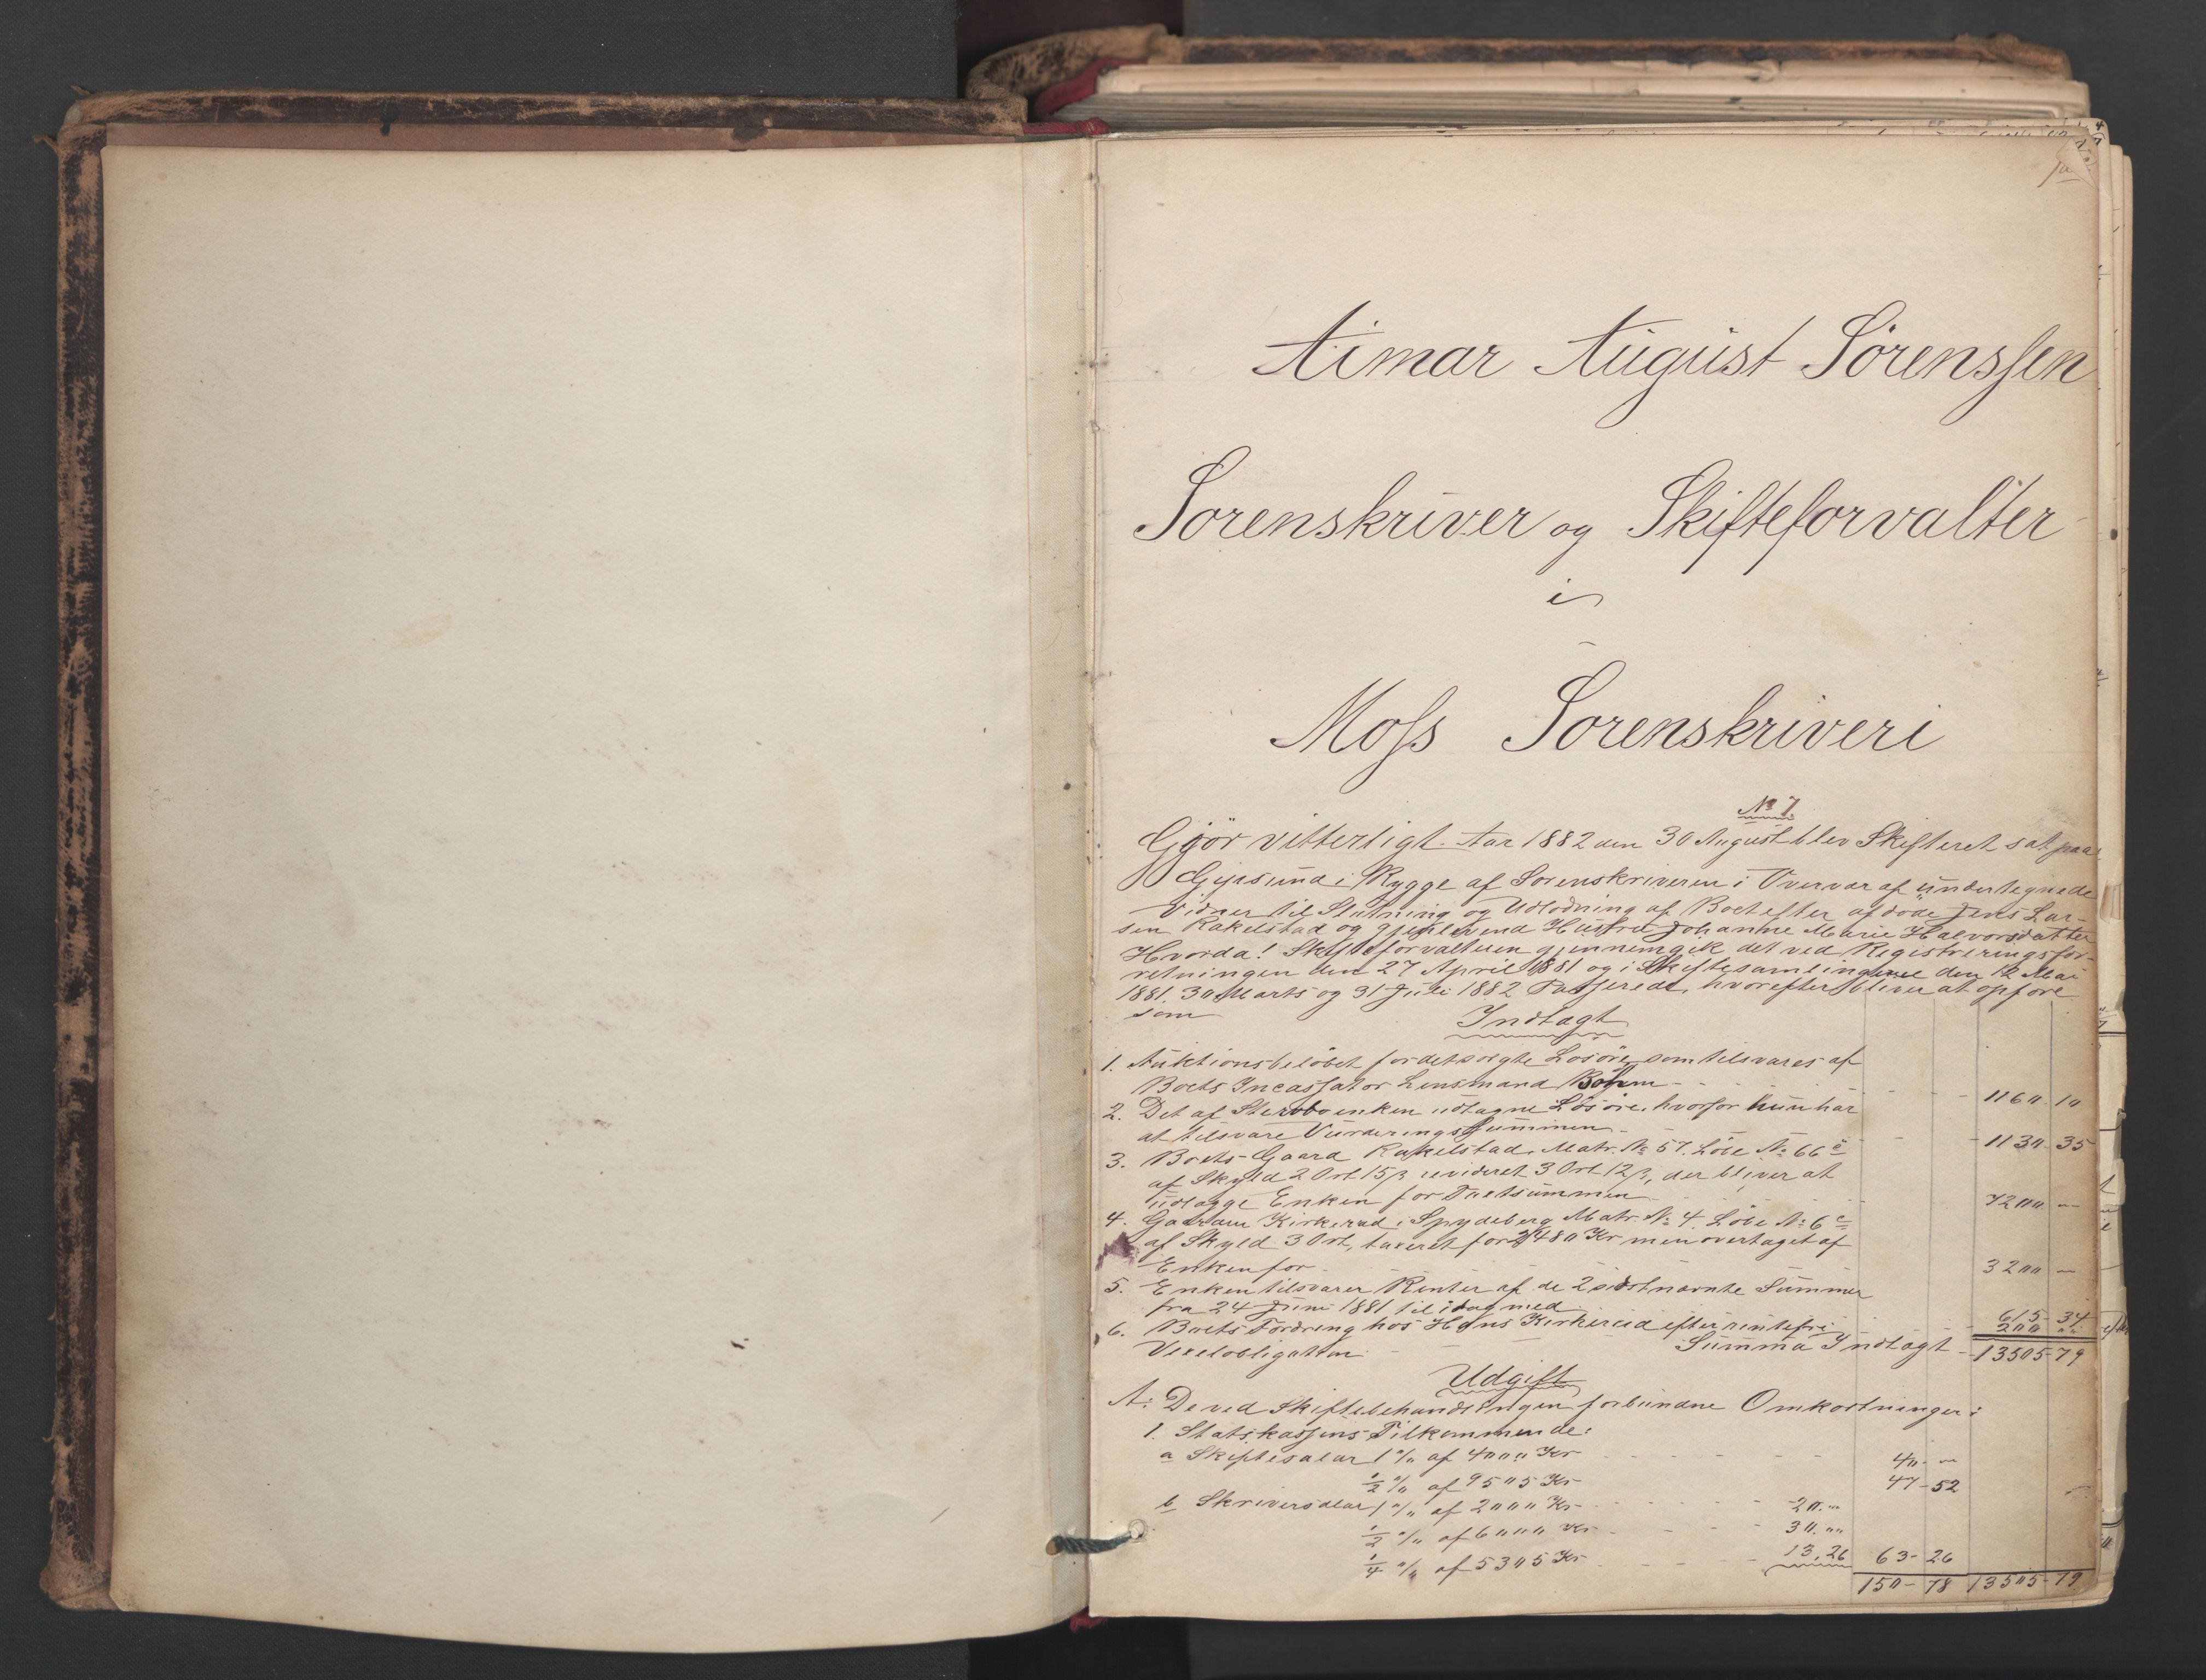 Aimar August Sørenssen
Sorenskriver og Skifteforvalter
i
Moss Sorenskriveri
No 7.
Gjör vitterligt. Aar 1882 den 30 August blev Skifteret sat paa
i Rygge af Sorenskriveren i Overvær af undertegnede
Vidner til Slutning og Udlodning af Boet efter afdöde Jens Lar-
sen Rakelstad og gjenlevend Hustru Johanne Marie Halvorsdatter
Hvorda! Skifteforvalteren gjennemgik det ved Registreringsfor-
retningen den 27 April 1881 og i Skiftesamlingerne den 12 Mai
1881, 30 Marts og 31 Juli 1882 Passerede, hvorefter bliver at opføre
som
Indtægt
1. Auktionsbelöbet for det solgte Losöre, som tilsvares af
Boets Incassator Lensmand - 1160. 10
2. Det af Sterboenken udtagne Lösöre, hvorfor hun har
at tilsvare Vurderingssummen - 1130. 35
3. Boets Gaard Rakelstad, Matr. No 57. Löbe No 66 c
af Skyld 2 Ort 15 β revideret 3 Ort 12 β, der bliver at
udlægge Enken for Taxtsummen - 7200 -
4. Gaarden Kirkerud i Spydeberg Matr. No 4. Löbe No 6 c
af Skyld 3 Ort, taxeret for 2480 Kr men overtaget af
Enken for - 3200 -
5. Enken tilsvarer Renter af de 2 sidstnævnte Summer
fra 24 Juni 1881 til idag med - 615- 34
6. Boets Fordring hos Hans Kirkerud efter rentefri 200 "
Vexelobligation. - Summa Indtægt - 13505-79
Udgift
A: De ved Skiftebehandlingen forbundne Omkostninger:
1. Statskassens Tilkommende:
a Skiftesalar 1 % af 4000 Kr - 40. -
½ % af 9505 Kr 47-52
b Skriversalar 1 % af 2000 Kr - 20. "
½ % af 6000 Kr - 30. "
¼ % af 5305 Kr - 13.26 63- 26
150- 78 13505-79